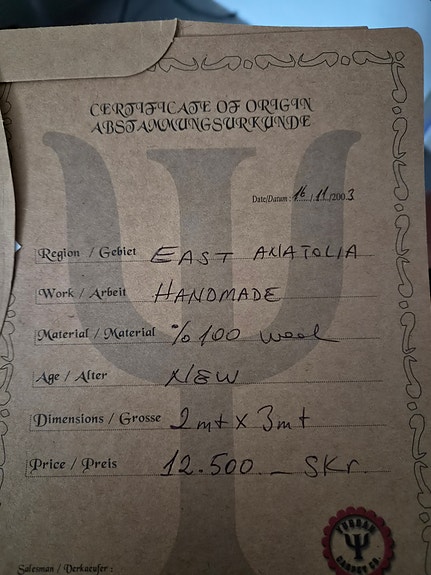 CERTIFICATE OF ORIGIN
ABSTAMMUNGSURKUNDE
Date/Datum : 16 / 11 /2003
Region / Gebiet EAST ANATOLIA
Work / Arbeit HANDMADE
Material / Material %100 wool
Age / Alter NEW
Dimensions / Grosse 2mt X 3mt
Price / Preis 12.500 _ SKr.
Salesman / Verkaeufer :
CARPET CO.